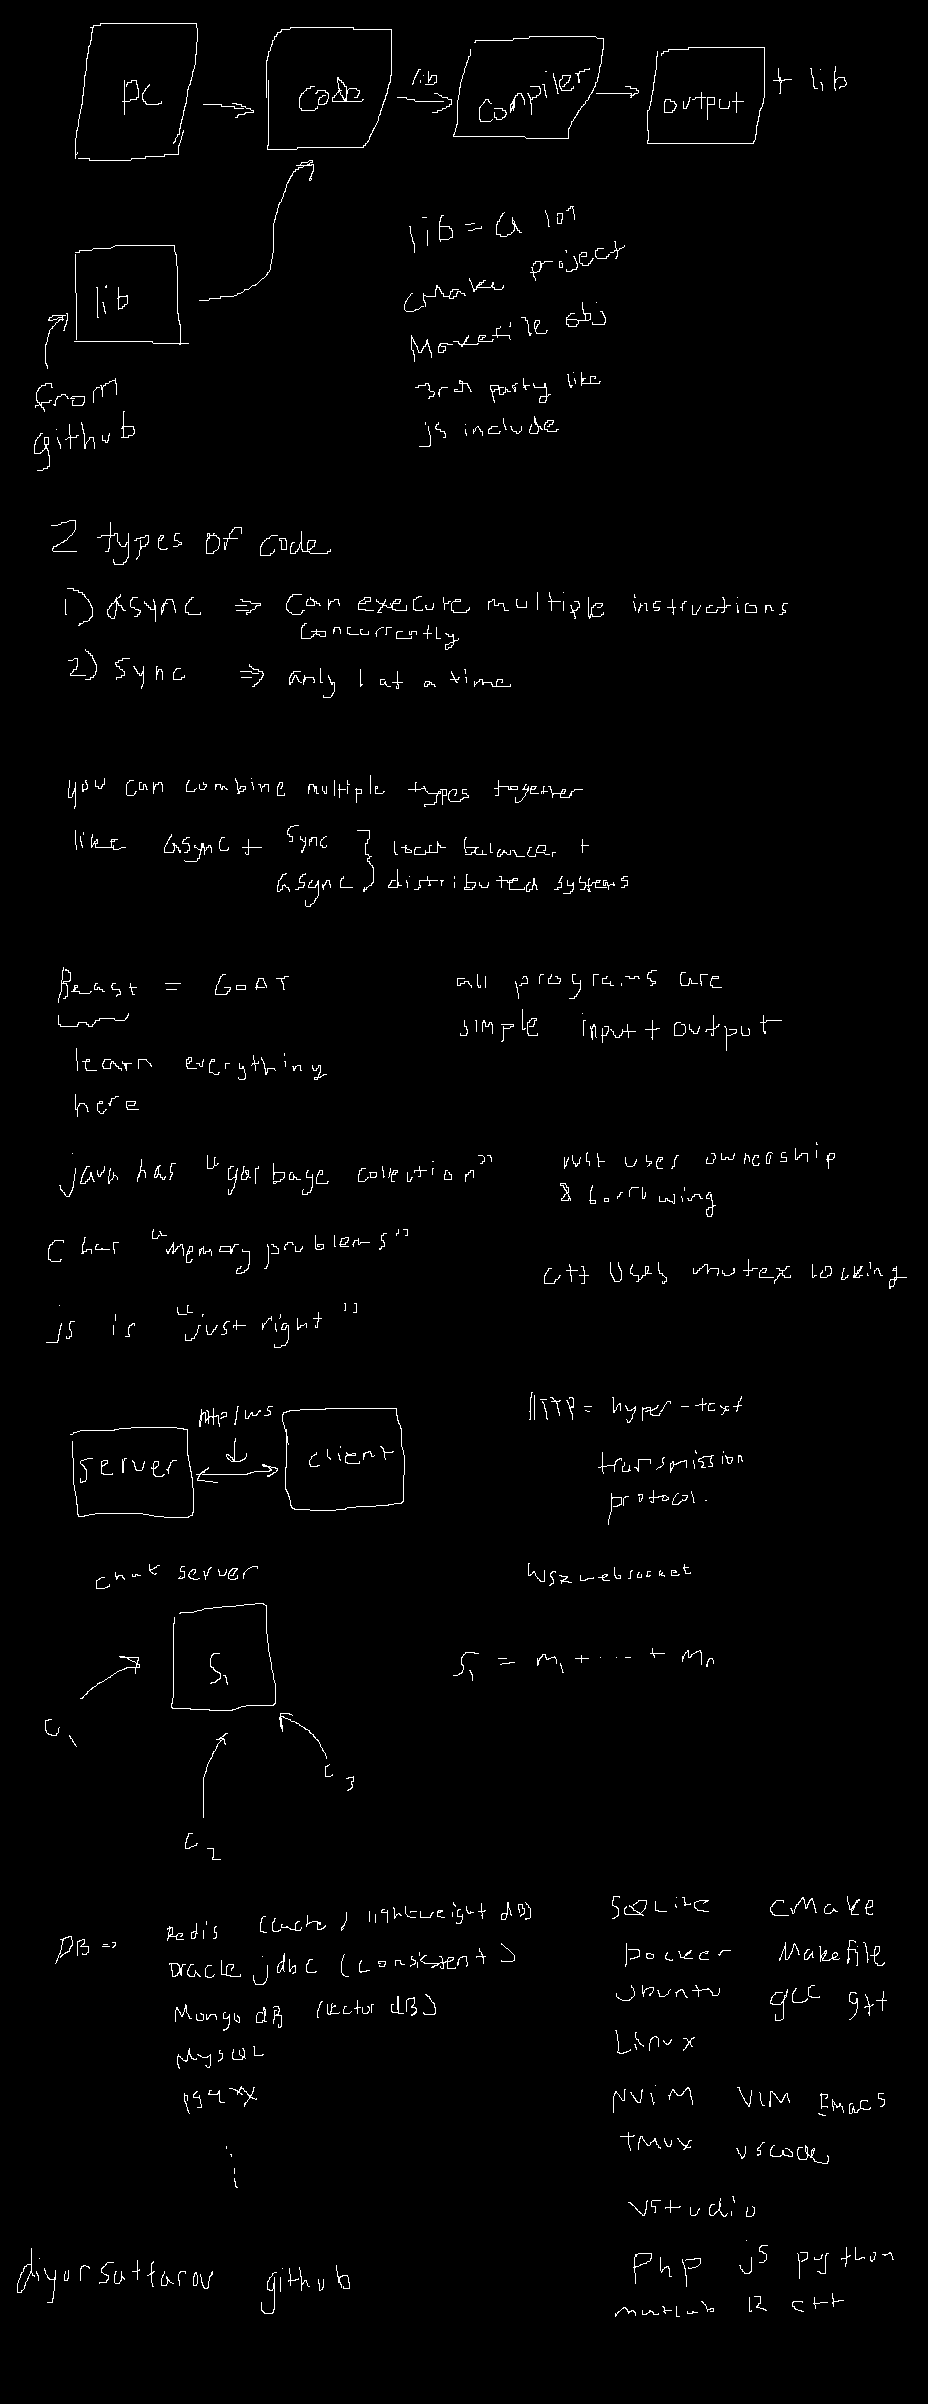 pc
code
lib
compiler
output
+ lib
lib
from
github
lib = a lot
cmake project
Makefile obj
3rd party like
js include
2 types of code
1) async => can execute multiple instructions
concurrently
2) sync => only 1 at a time
you can combine multiple types together
like async + sync
async
load balancer +
distributed systems
Beast = GOAT
learn everything
here
all programs are
simple input + output
java has "garbage collection"
C has "memory problems"
js is "just right"
rust uses ownership
& borrowing
c++ uses mutex locking
server
http/ws
client
HTTP = hyper-text
transmission
protocol.
chat server
ws = websocket
S1
C1
C2
C3
S1 = m1 + ... + mn
DB => Redis (cache, lightweight dB)
Oracle jdbc (consistent)
Mongo dB (vector dB)
MySQL
pqxx
SQLite cMake
Docker Makefile
Ubuntu gcc g++
Linux
NviM VIM Emacs
TMux vscode
VStudio
Php js python
matlab R c++
diyorsattarov github